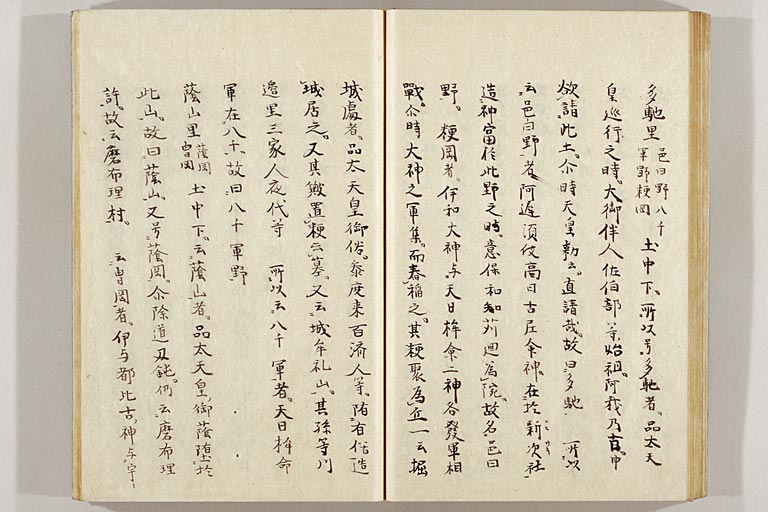 多馳里 邑曰野八千軍野粳岡 土中下。所以号多馳者。品太天
皇巡行之時。大御伴人佐伯部等始祖。阿我乃古。申
欲請此土。尒時天皇勅云。直請哉。故曰多馳 所以
云邑曰野者。阿遅須伎高日古尼命神。在於新次社
造神宮於此野之時。意保和知苅廻為院。故名邑曰
野。 粳岡者。伊和大神与天日桙命二神各發軍相
戰。尒時大神之軍集。而舂稲之。其粳聚為丘一云堀
城處者。品太天皇御俗。参度来百済人等。随有俗造
城居之。又其簸置粳云墓。又云城牟礼山。其孫等川
邉里三家人夜代等 所以云八千軍者。天日桙命
軍在八千。故曰八千軍野
蔭山里 蔭岡冑岡 土中下。云蔭山者。品太天皇。御蔭堕於
此山。故曰蔭山。又号蔭岡。尒除道刃鈍。仍云磨布理
許。故云磨布理村。 云冑岡者。伊与都比古神与宇